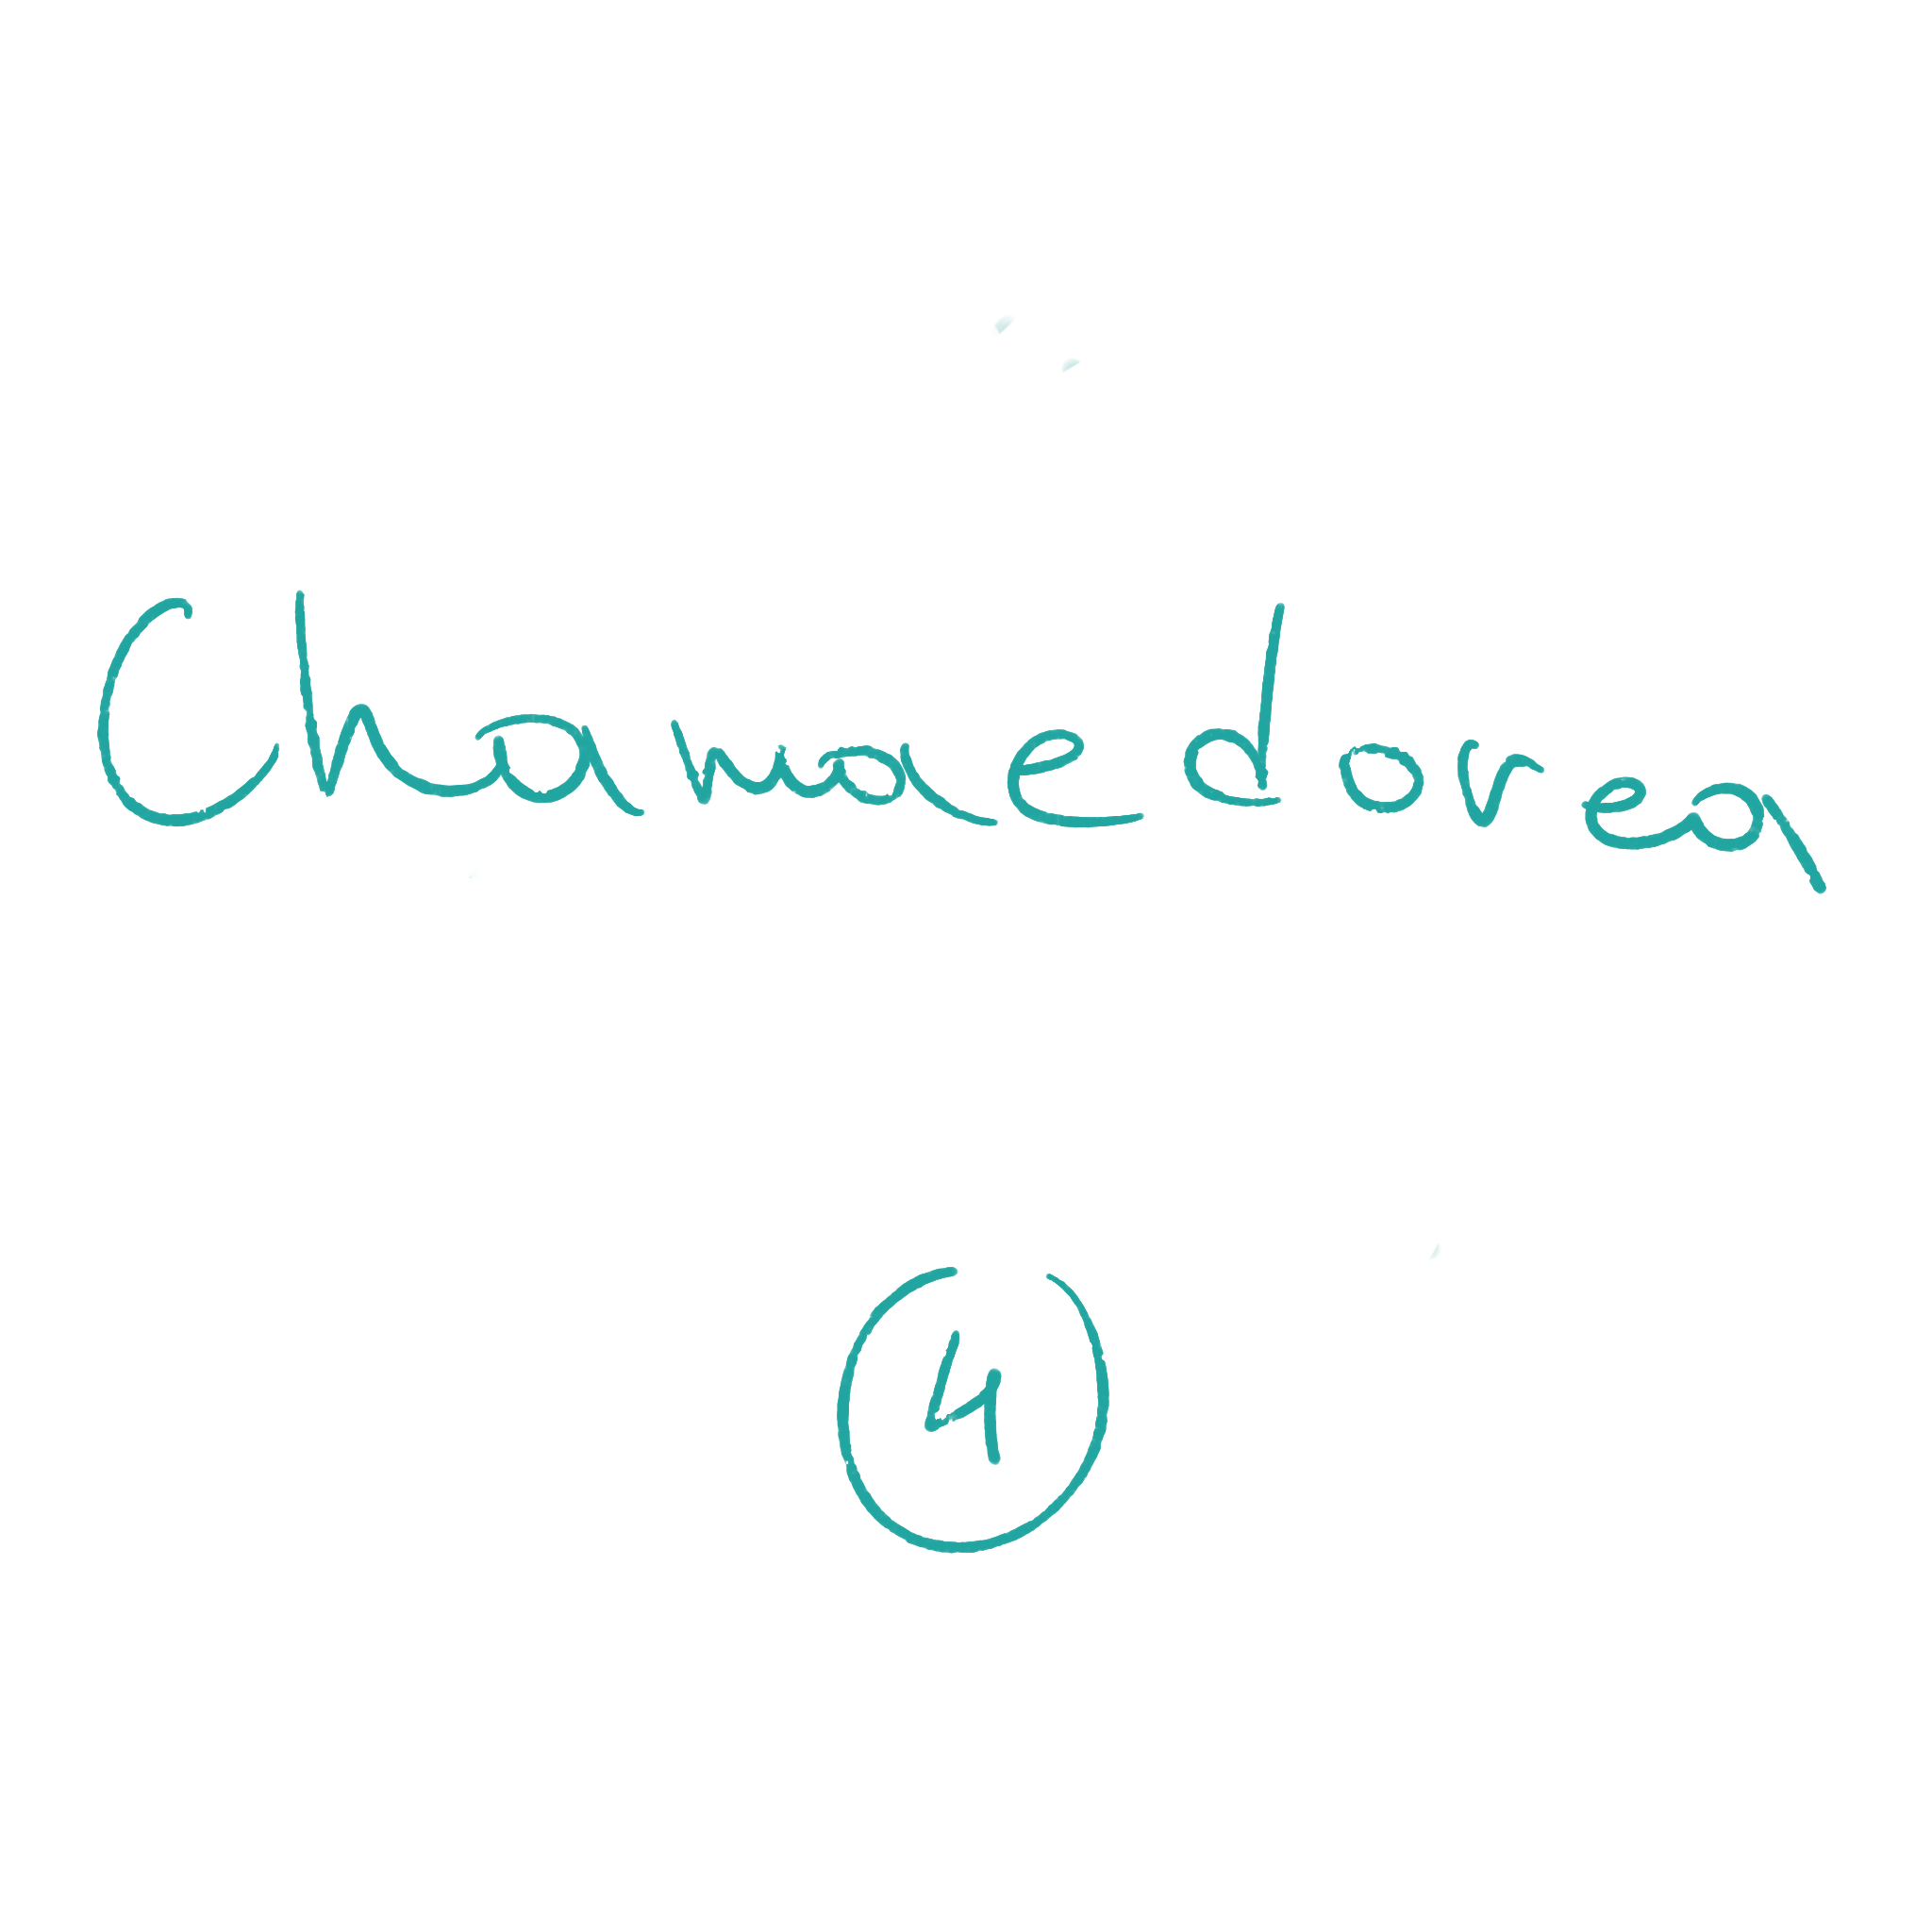 Chamaedorea
4